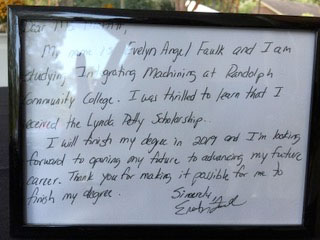 My name is Evelyn Angel Faulk and I am
studying In grating Machining at Randolph
Community College. I was thrilled to learn that I
received the Lynda Petty Scholarship.
I will finish my degree in 2019 and I'm looking
forward to opening my future to advancing my future
career. Thank you for making it possible for me to
finish my degree.
Sincerely,